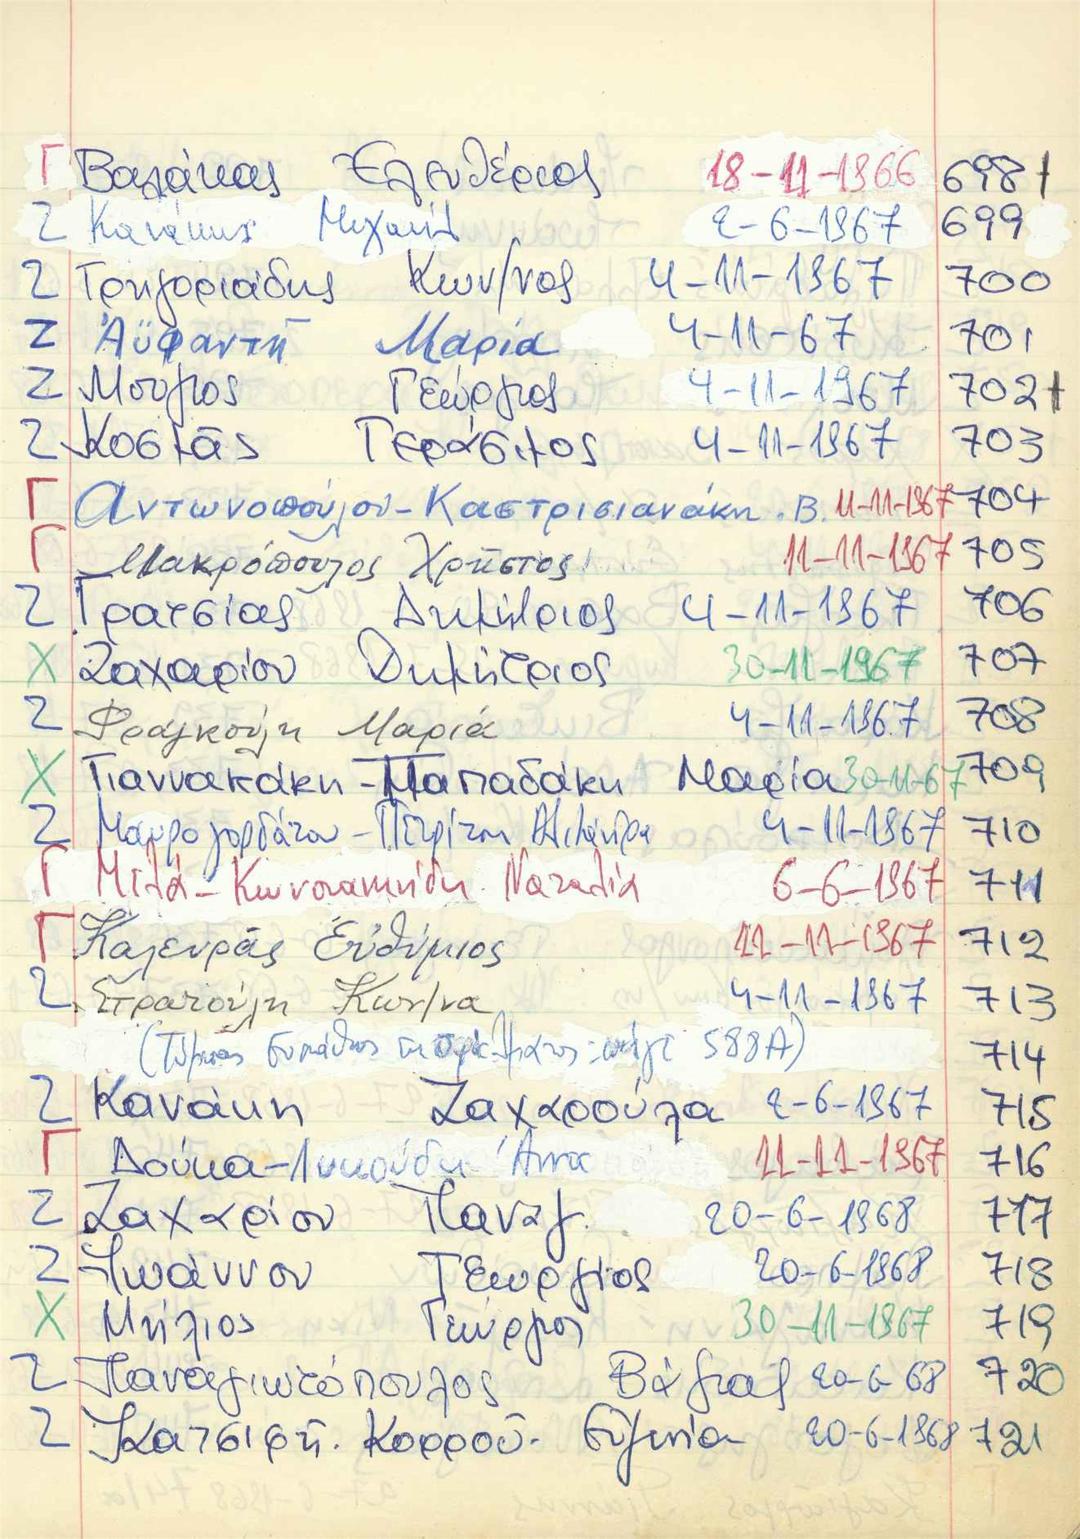 Γ Βαλάκας Ελευθέριος 18-11-1966 698+
2 Κανάκης Μιχαήλ 2-6-1967 699
2 Γρηγοριάδης Κων/νος 4-11-1967 700
2 Ἀϋφαντῆ Μαρία 4-11-67 701
2 Μούγιος Γεώργιος 4-11-1967 702+
2 Κοστᾶς Γεράσιμος 4-11-1967 703
Γ Αντωνοπούλου-Καστρισιανάκη.Β. 11-11-1967 704
Γ Μακρόπουλος Χρῆστος 11-11-1967 705
2 Γρατσίας Δημήτριος 4-11-1967 706
Χ Ζαχαρίου Δημήτριος 30-11-1967 707
2 Φραγκούλη Μαρία 4-11-1967 708
Χ Γιαννακάκη-Παπαδάκη Μαρία 30-11-67 709
2 Μαυρογορδάτου-Πιτρίτση 4-11-1967 710
Γ Μιλά-Κωνσταντινίδη Ναταλία 6-6-1967 711
Γ Καλευρᾶς Εὐθύμιος 11-11-1967 712
2 Στρατούλη Κων/να 4-11-1967 713
( 588Α) 714
2 Κανάκη Ζαχαρούλα 2-6-1967 715
Γ Δούκα-Λυκούδη Ἄννα 11-11-1967 716
2 Ζαχαρίου Παναγ. 20-6-1968 717
2 Ἰωάννου Γεώργιος 20-6-1968 718
Χ Μήλιος Γεώργιος 30-11-1967 719
2 Παναγιωτόπουλος Βάγιας 20-6-68 720
2 Κατσιρῆ. Κορροῦ. Εὐγενία 20-6-1968 721